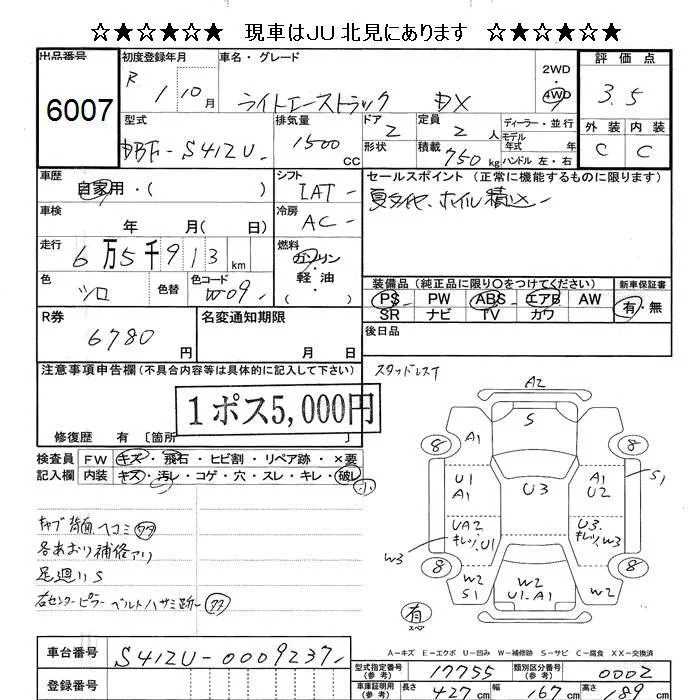 ☆★☆★☆★ 現車はJU北見にあります ☆★☆★☆★
出品番号 初度登録年月 車名・グレード 2WD 評価点
6007 R 1 10月 ライトエーストラック DX 4WD 3.5
型式 排気量 ドア 定員 ディーラー・並行 外装 内装
DBF-S412U 1500CC 2 2人 モデル年式 年 C C
形状 積載 750kg ハンドル 左・右
車歴 シフト セールスポイント(正常に機能するものに限ります)
自家用・( ) IAT 夏タイヤ、ホイル積込
車検 冷房
年 月( 日) AC
走行 燃料
6万5千913km ガソリン・軽油
色 色替 色コード ( )
シロ W09
装備品(純正品に限り○をつけてください) 新車保証書
PS PW ABS エアB AW 有・無
SR ナビ TV カワ
R券 名変通知期限 後日品
6780円 月 日
注意事項申告欄(不具合内容等は具体的に記入して下さい) スタッドレス
1ポス5,000円
修復歴 有〔箇所 〕
検査員 FW キズ・飛石・ヒビ割・リペア跡・×要
記入欄 内装 キズ・汚レ・コゲ・穴・スレ・キレ・破レ 小
キャブ背面ヘコミ
各あおり補修アリ
足廻りS
右センターピラーベルトハサミ跡
A2
S
8 A1 8
U1 A1 U3 A1 U2 S1
UA2 キレツ U1 U3 キレツ W3
W3
8 8
W2 S1 W2 U1・A1 W2
有 スペア
A-キズ E-エクボ U-凹み W-補修跡 S-サビ C-腐食 XX-交換済
車台番号 S412U-0009237
型式指定番号(参考) 17755 類別区分番号(参考) 0002
登録番号 車庫証明用(参考) 長さ 427cm 幅 167cm 高さ 189cm